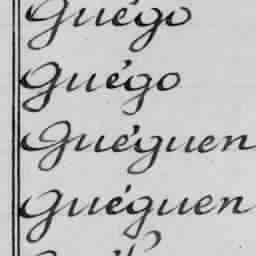 Guégo
Guégo
Guéguen
Guéguen